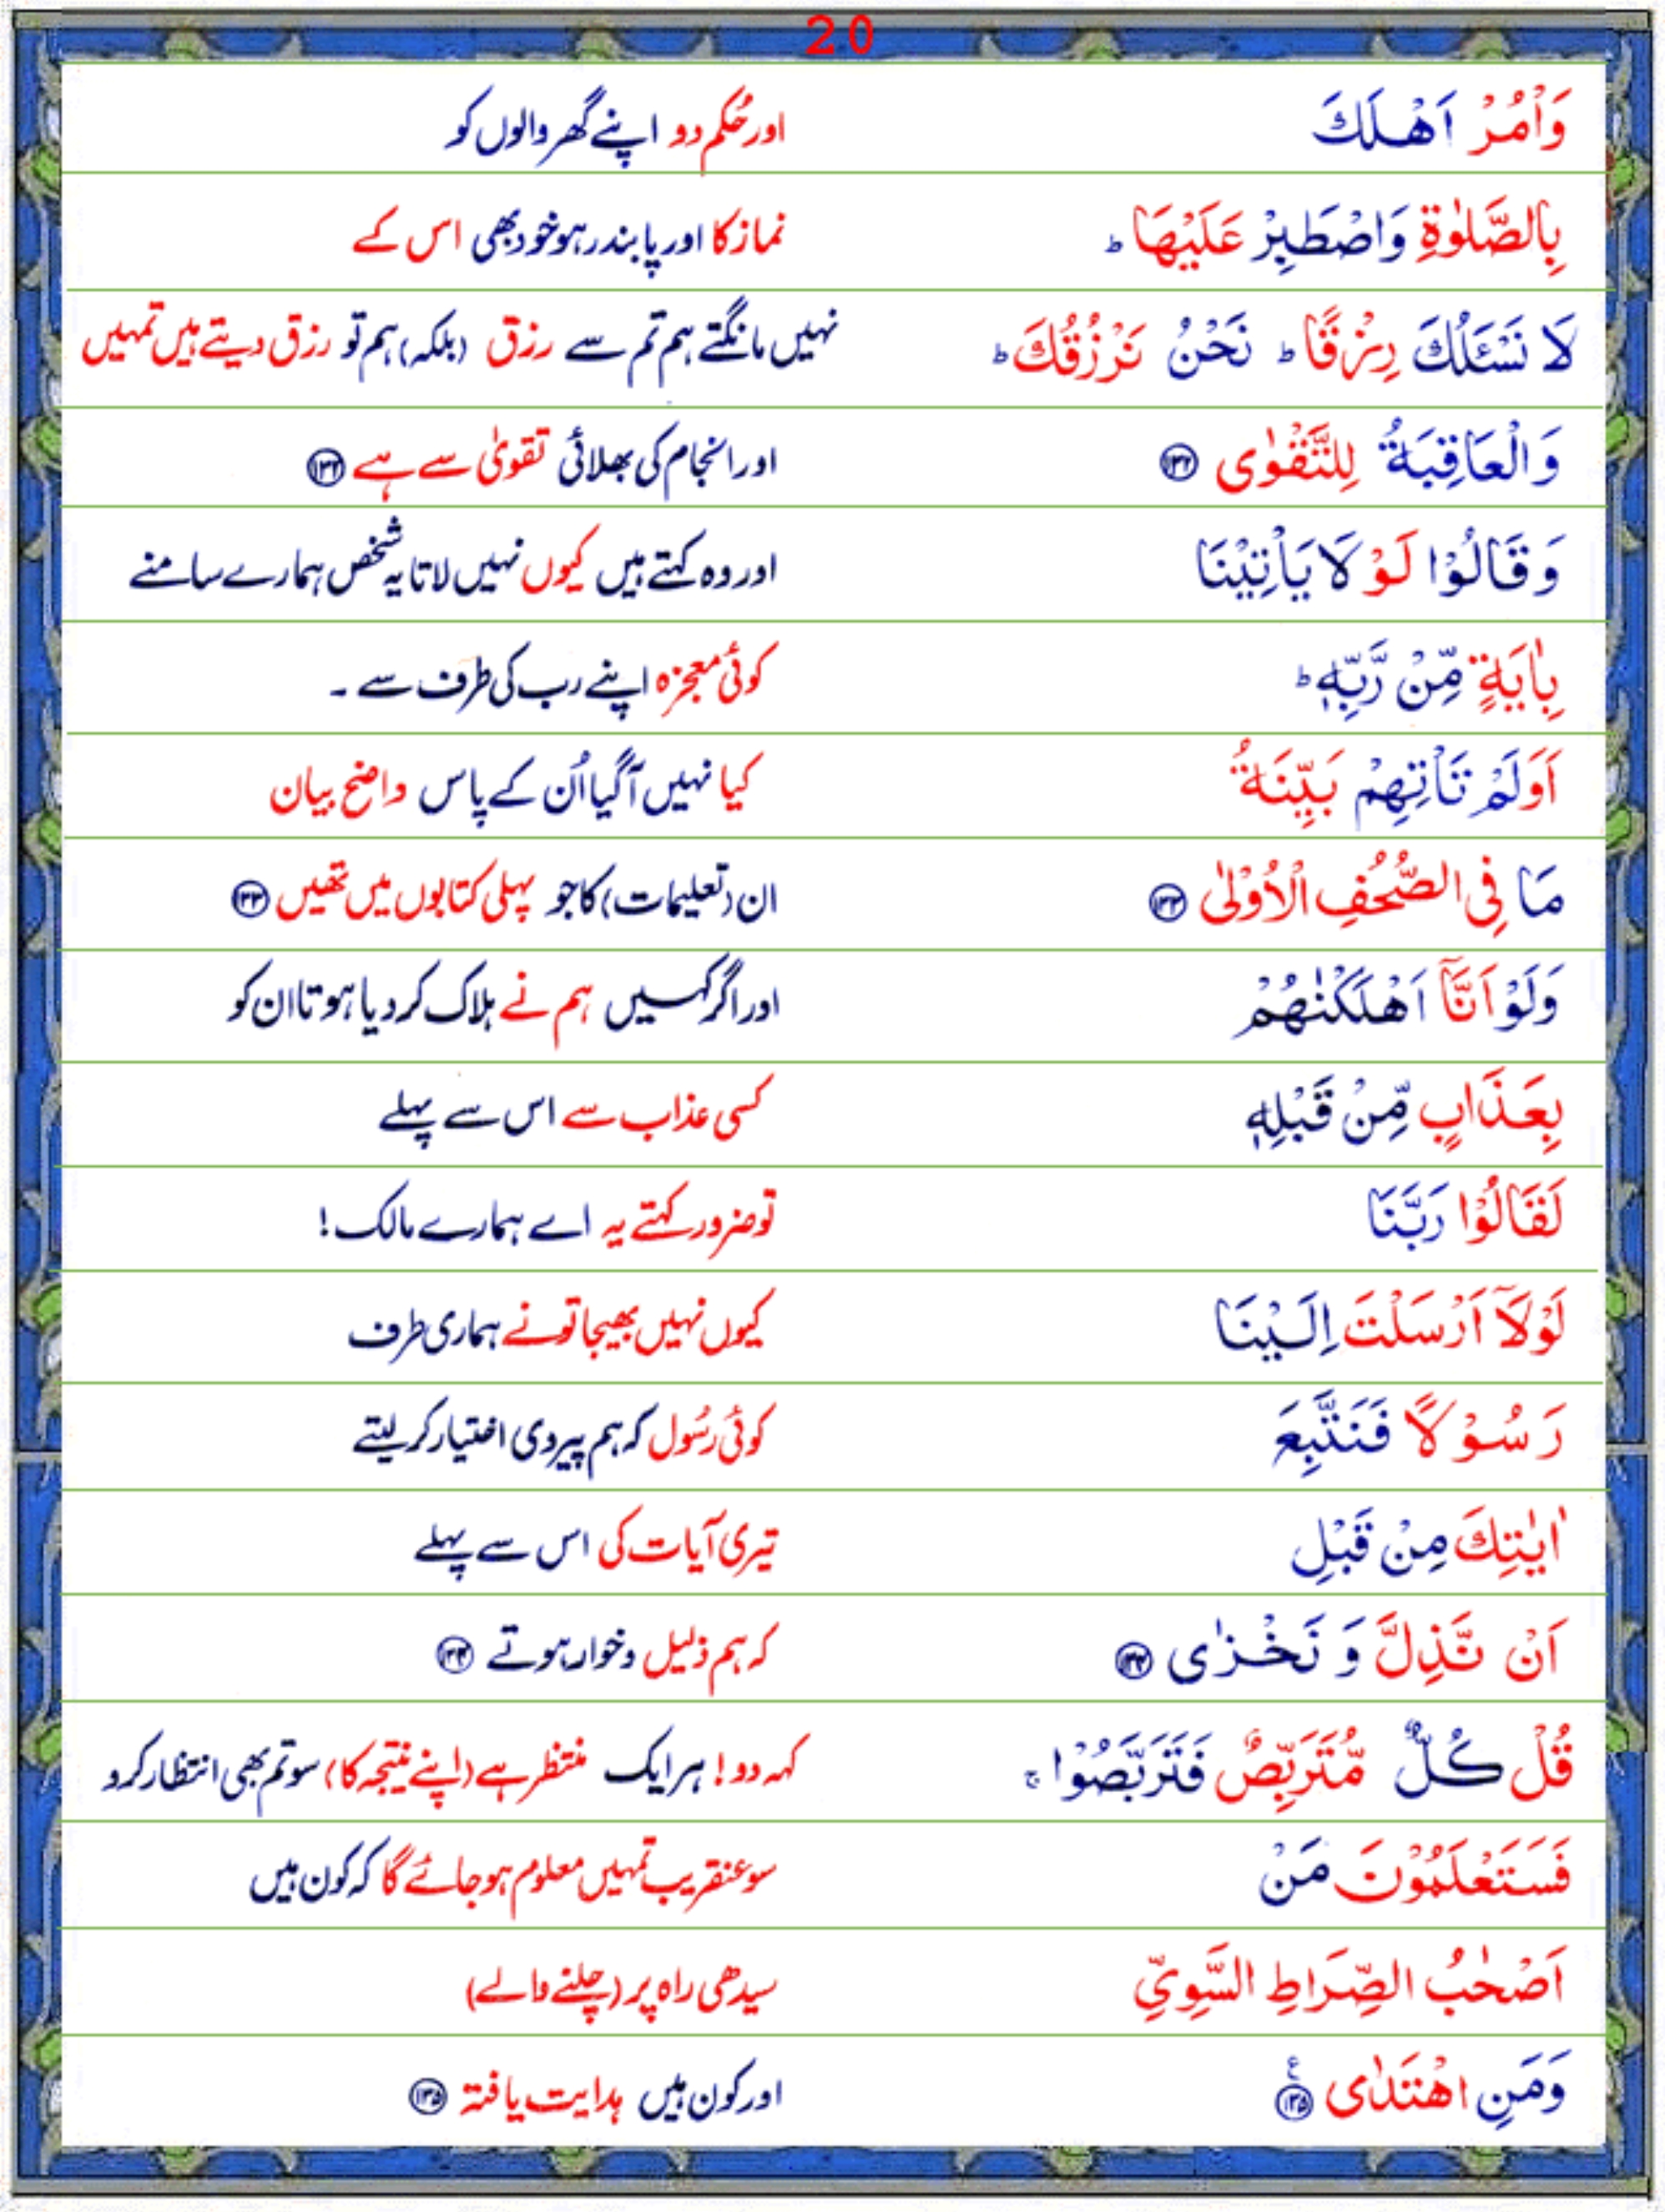 20
وَاْمُرْ اَهْلَكَ اور حُکم دو اپنے گھر والوں کو
بِالصَّلٰوةِ وَاصْطَبِرْ عَلَيْهَا ؕ نماز کا اور پابند رہو خود بھی اس کے
لَا نَسْـَٔلُكَ رِزْقًا ؕ نَحْنُ نَرْزُقُكَ ؕ نہیں مانگتے ہم تم سے رزق (بلکہ) ہم تو رزق دیتے ہیں تمہیں
وَالْعَاقِبَةُ لِلتَّقْوٰى ۝۱۳۲ اور انجام کی بھلائی تقویٰ سے ہے ۝۱۳۲
وَقَالُوْا لَوْ لَا يَاْتِيْنَا اور وہ کہتے ہیں کیوں نہیں لاتا یہ شخص ہمارے سامنے
بِاٰيَةٍ مِّنْ رَّبِّهٖ ؕ کوئی معجزہ اپنے رب کی طرف سے ۔
اَوَلَمْ تَاْتِهِمْ بَيِّنَةُ کیا نہیں آگیا اُن کے پاس واضح بیان
مَا فِى الصُّحُفِ الْاُوْلٰى ۝۱۳۳ ان (تعلیمات) کا جو پہلی کتابوں میں تھیں ۝۱۳۳
وَلَوْ اَنَّاۤ اَهْلَكْنٰهُمْ اور اگر کہیں ہم نے ہلاک کر دیا ہوتا ان کو
بِعَذَابٍ مِّنْ قَبْلِهٖ کسی عذاب سے اس سے پہلے
لَقَالُوْا رَبَّنَا تو ضرور کہتے یہ اے ہمارے مالک !
لَوْلَاۤ اَرْسَلْتَ اِلَيْنَا کیوں نہیں بھیجا تونے ہماری طرف
رَسُوْلًا فَنَتَّبِعَ کوئی رسُول کہ ہم پیروی اختیار کر لیتے
اٰيٰتِكَ مِنْ قَبْلِ تیری آیات کی اس سے پہلے
اَنْ نَّذِلَّ وَ نَخْزٰى ۝۱۳۴ کہ ہم ذلیل و خوار ہوتے ۝۱۳۴
قُلْ كُلٌّ مُّتَرَبِّصٌ فَتَرَبَّصُوْا ۚ کہہ دو ! ہر ایک منتظر ہے (اپنے نتیجہ کا) سو تم بھی انتظار کرو
فَسَتَعْلَمُوْنَ مَنْ سو عنقریب تمہیں معلوم ہو جائے گا کہ کون ہیں
اَصْحٰبُ الصِّرَاطِ السَّوِىِّ سیدھی راہ پر (چلنے والے)
وَمَنِ اهْتَدٰى ۝۱۳۵ ع اور کون ہیں ہدایت یافتہ ۝۱۳۵